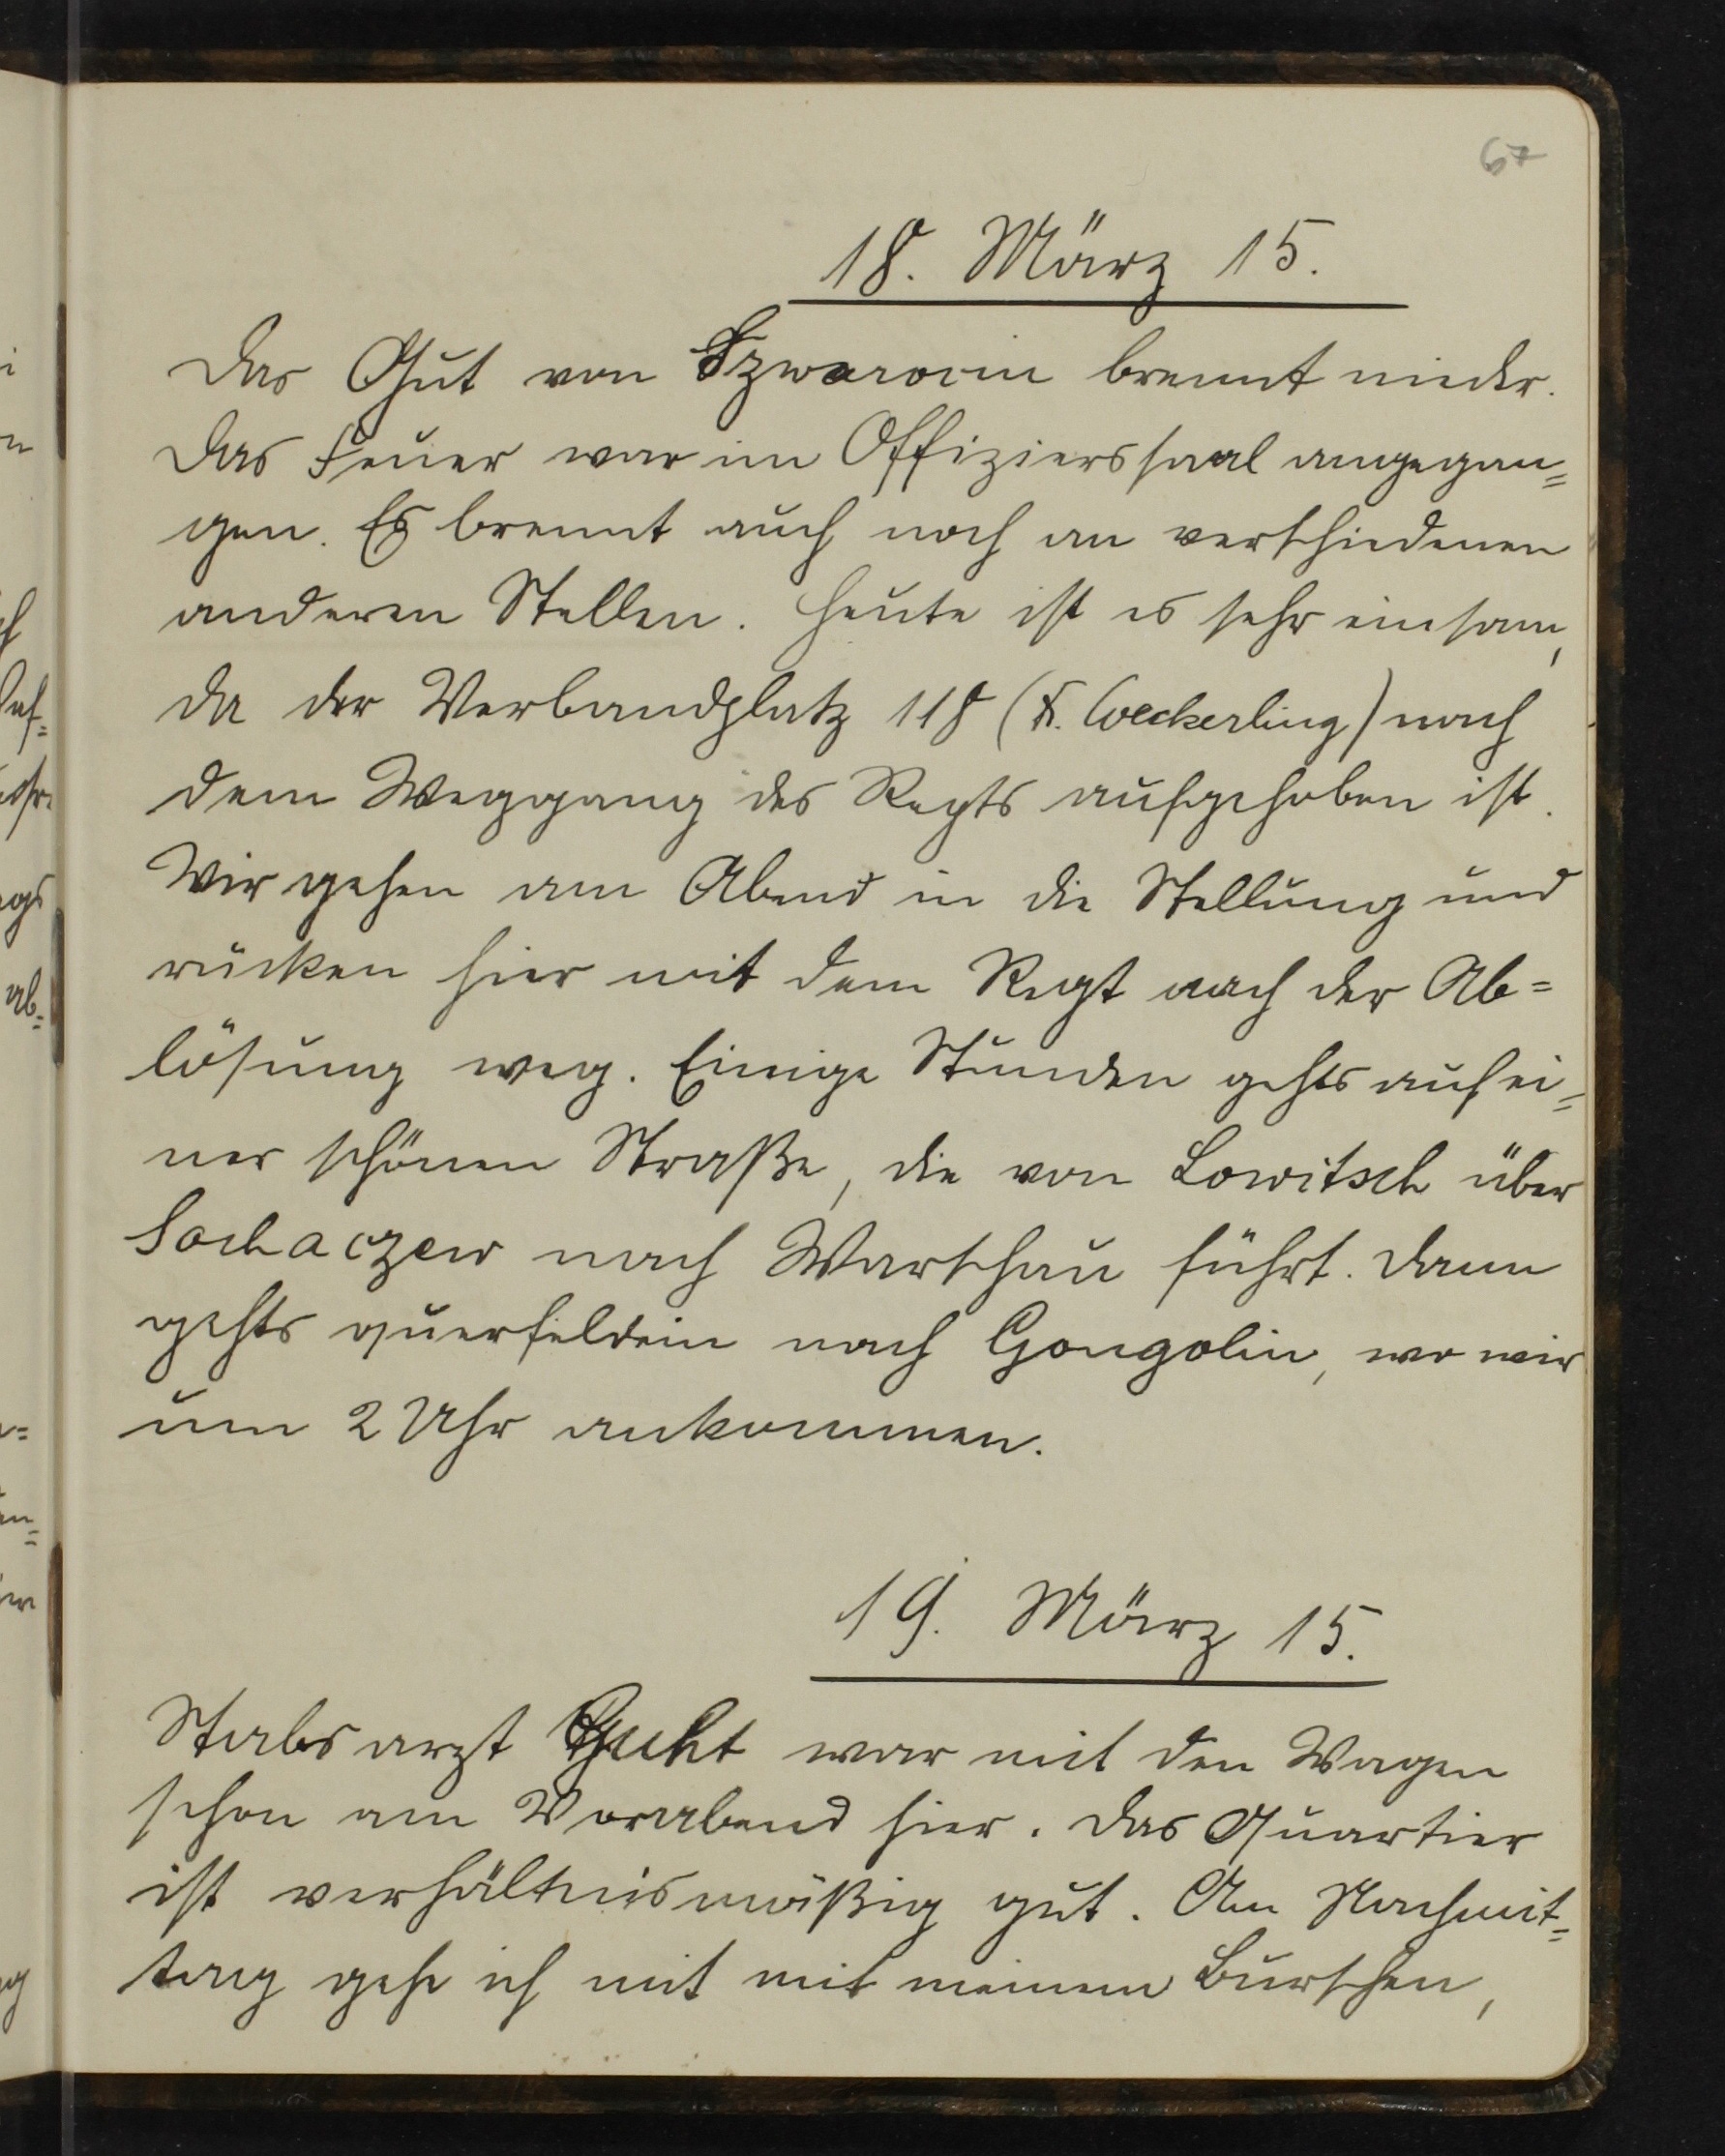 67
18. März 15.
Das Gut von Szwarocin brennt nieder.
Das Feuer war im Offizierssaal angegan=
gen. Es brennt auch noch an verschiedenen
anderen Stellen. Heute ist es sehr einsam,
da der Verbandplatz 118 (Weckerling) nach
dem Weggang des Regts aufgehoben ist.
Wir gehen am Abend in die Stellung und
rücken hier mit dem Regt nach der Ab=
lösung weg. Einige Stunden gehts auf ei=
ner schönen Straße, die von Lowitsch über
Sochaczew nach Warschau führt. Dann
gehts querfeldein nach Gongolin, wo wir
um 2 Uhr ankommen.
19. März 15.
Stabsarzt war mit den Wagen
schon am Vorabend hier. Das Quartier
ist verhältnismäßig gut. Am Nachmit=
tag gehe ich mit mit meinem Burschen,